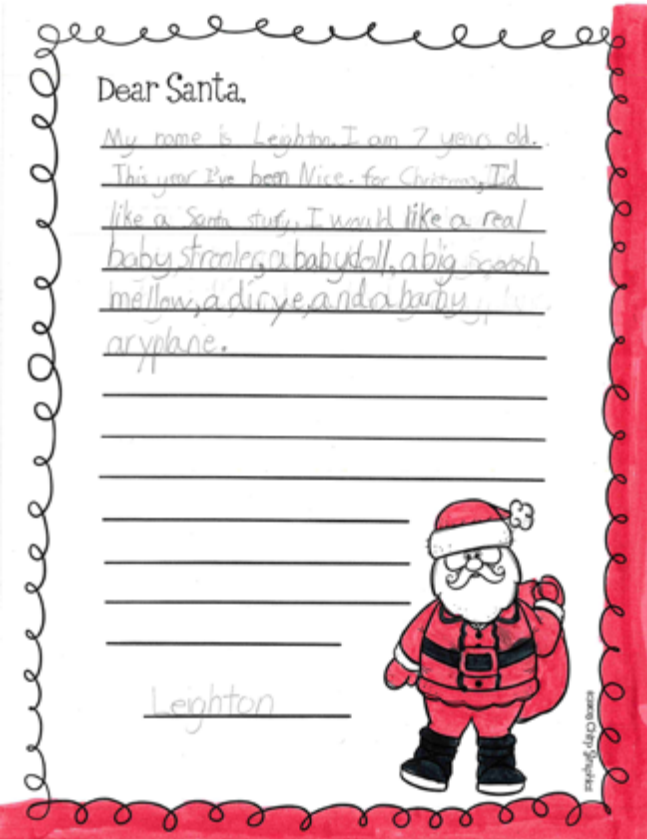 Dear Santa,
My name is Leighton. I am 7 years old.
This year I've been Nice. for Christmas, I'd
like a Santa stufy, I would like a real
baby stroler, a babydoll, a big sqoosh
mellow, a dirye, and a barby
aryplane.
Leighton